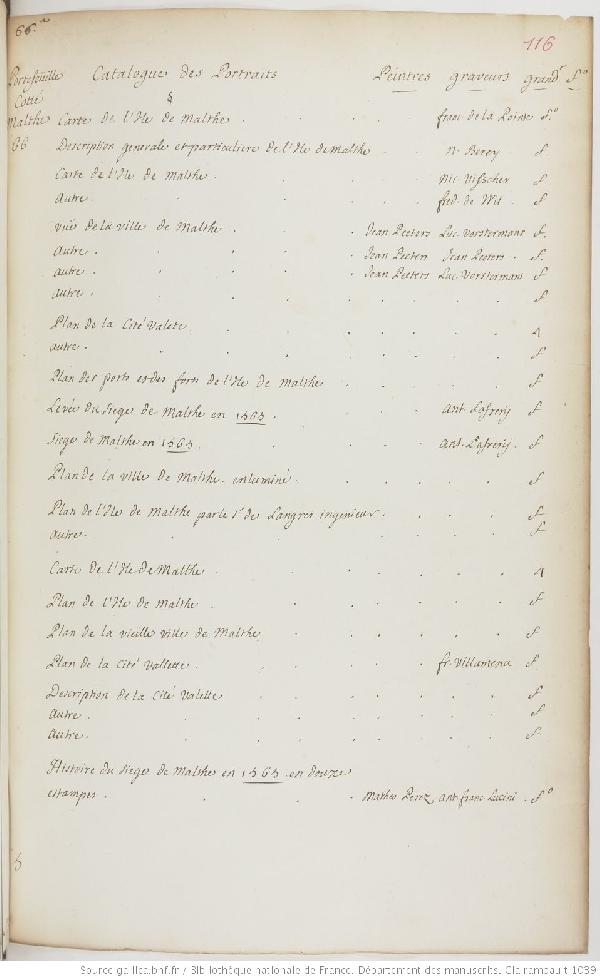 66.a
116
Portefeuille Catalogue des Portraits Peintres graveurs grandr fo
Cotté
Malthe
66
Carte de l'Ile de Malthe . . . . de la Pointe f.o
Description generale et particuliere de l'Ile de Malthe . . N. Berey . f
Carte de l'Ile de Malthe . . . . Nic. Visscher . f
autre . . . . . fred. de Wit . f
vüe de la ville de Malthe . . . Jean Peeters Luc. Vorstermans f.
autre . . . . Jean Peeters Jean Peeters . f.
autre . . . . Jean Peeters Luc. Vorstermans f
autre . . . . . . f
Plan de la Cité Valete . . . . . 4
autre . . . . . . f
Plan des ports et des forts de l'Ile de Malthe . . . . f
Levée du siege de Malthe en 1565 . . . Ant. Lafrery f
siege de Malthe en 1565 . . . . Ant. Lafrery . f
Plan de la ville de Malthe . enluminé . . . . f
Plan de l'Ile de Malthe par le Sr de Langres ingenieur . . . f
autre . . . . . . f
Carte de l'Ile de Malthe . . . . . 4
Plan de l'Ile de Malthe . . . . . f
Plan de la vieille ville de Malthe . . . . f
Plan de la Cité Vallette . . . . fr. Villamena f
Description de la Cité Valette . . . . . f
autre . . . . . . f
autre . . . . . . f
Histoire du siege de Malthe en 1565 . en douze
estampes . . . . Mathieu Perez Ant. franc. Lucini . fo
Source gallica.bnf.fr / Bibliothèque nationale de France. Département des manuscrits. Clairambault 1039